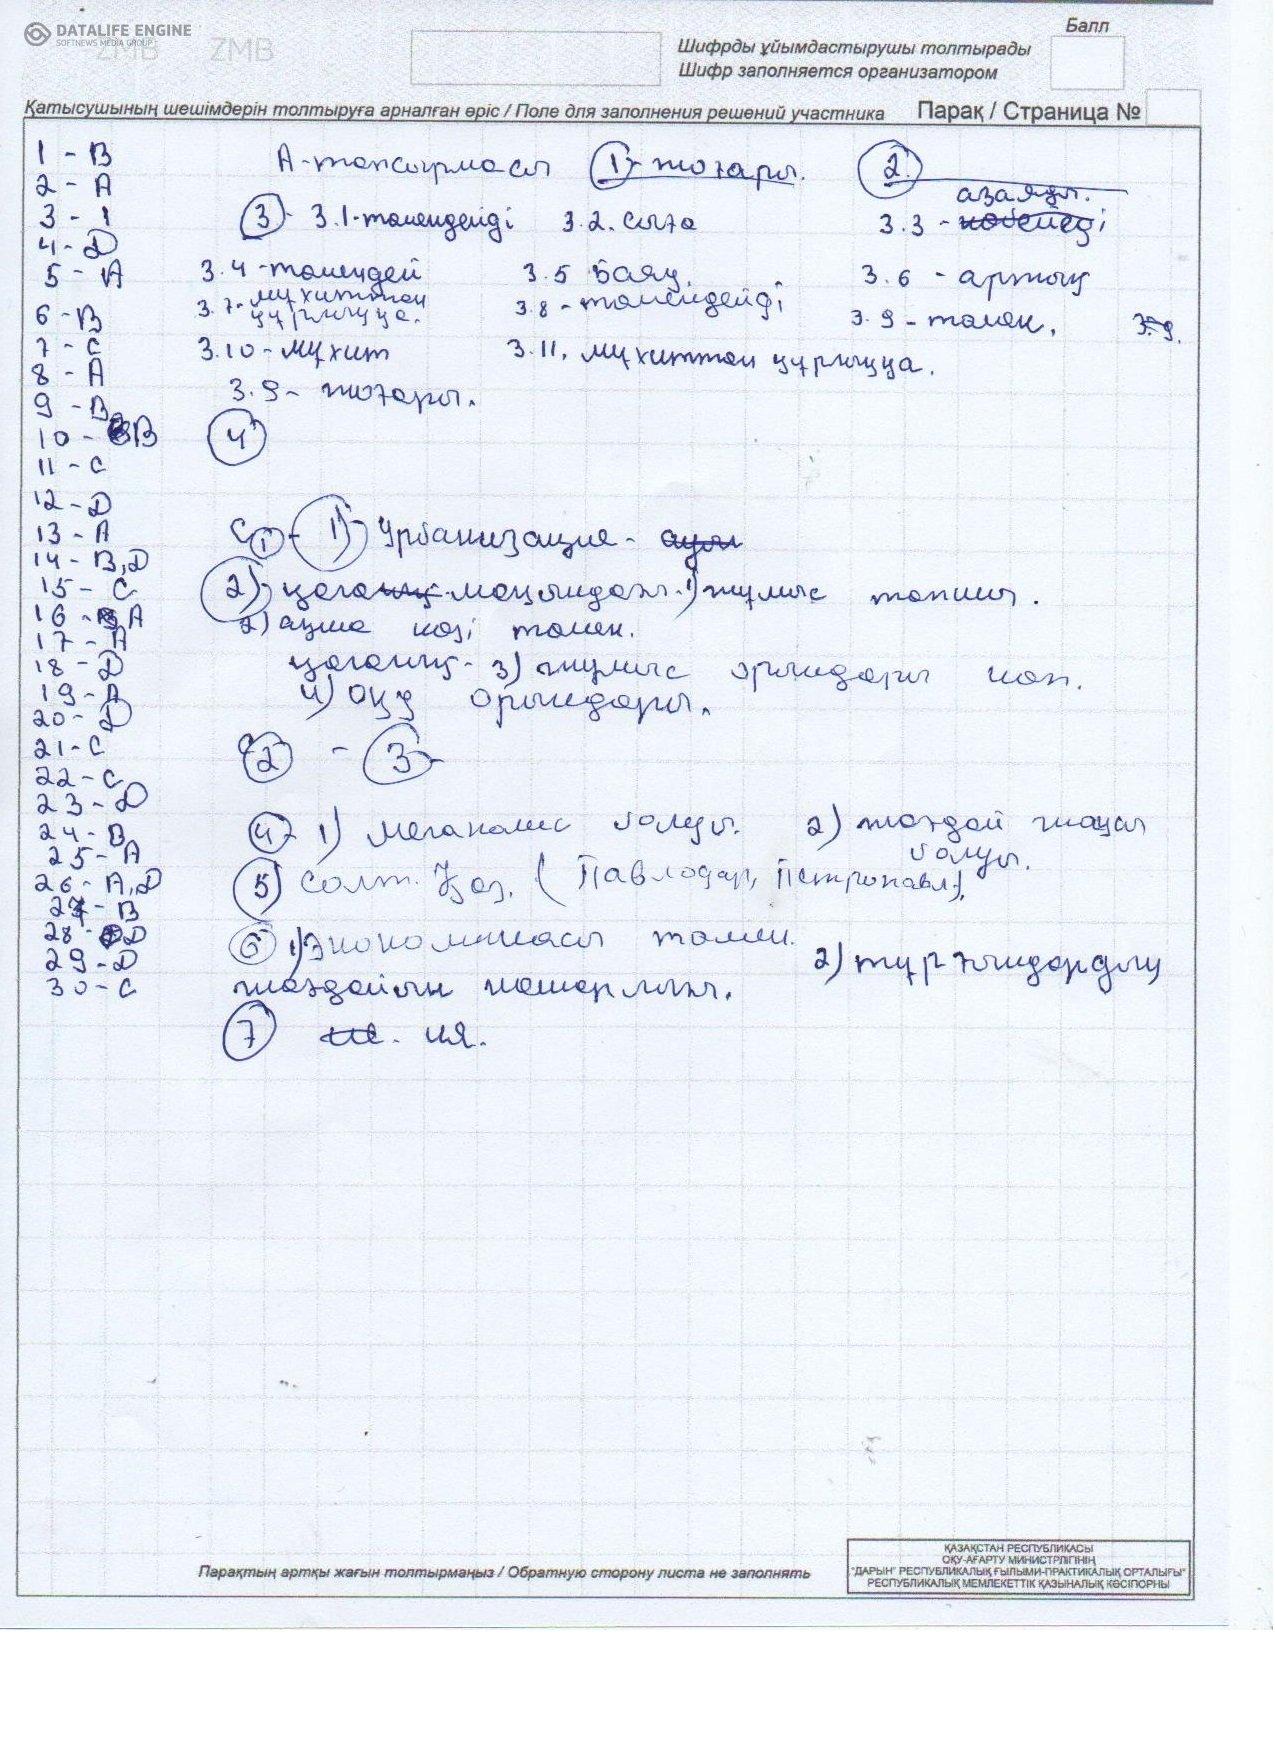 DATALIFE ENGINE
SOFTNEWS MEDIA GROUP
ZMB ZMB
Балл
Шифрды ұйымдастырушы толтырады
Шифр заполняется организатором
Қатысушының шешімдерін толтыруға арналған өріс / Поле для заполнения решений участника
Парақ / Страница №
1 - B
2 - A
3 - 1
4 - D
5 - A
6 - B
7 - C
8 - A
9 - B
10 - B
11 - C
12 - D
13 - A
14 - B, D
15 - C
16 - A
17 - A
18 - D
19 - A
20 - D
21 - C
22 - C
23 - D
24 - B
25 - A
26 - A, D
27 - B
28 - D
29 - D
30 - C
А-тапсырмасы 1 - жоғары. 2.
азаяды.
3 - 3.1-төмендейді 3.2. сыға 3.3 - көбейеді
3.4 - төмендей 3.5 Баяу. 3.6 - артық
3.7 - мұхиттан құрлыққа. 3.8 - төмендейді 3.9 - төмен. 3.9.
3.10 - мұхит 3.11. мұхиттан құрлыққа.
3.9 - жоғары.
4
C1 - 1) Урбанизация -
2) қала маңындағы. 1) жұмыс тапшы.
2) ақша көзі төмен.
қаланың - 3) жұмыс орындары көп.
4) оқу орындары.
C2 - 3 -
4 - 1) мегаполис болуы. 2) жағдай жақсы болуы.
5) Солт. Қаз. (Павлодар, Петропавл).
6 1) Экономикасы төмен. 2) тұрғындардың
жағдайын нашарлығы.
7 ия.
Парақтың артқы жағын толтырмаңыз / Обратную сторону листа не заполнять
ҚАЗАҚСТАН РЕСПУБЛИКАСЫ
ОҚУ-АҒАРТУ МИНИСТРЛІГІНІҢ
"ДАРЫН" РЕСПУБЛИКАЛЫҚ ҒЫЛЫМИ-ПРАКТИКАЛЫҚ ОРТАЛЫҒЫ"
РЕСПУБЛИКАЛЫҚ МЕМЛЕКЕТТІК ҚАЗЫНАЛЫҚ КӘСІПОРНЫ